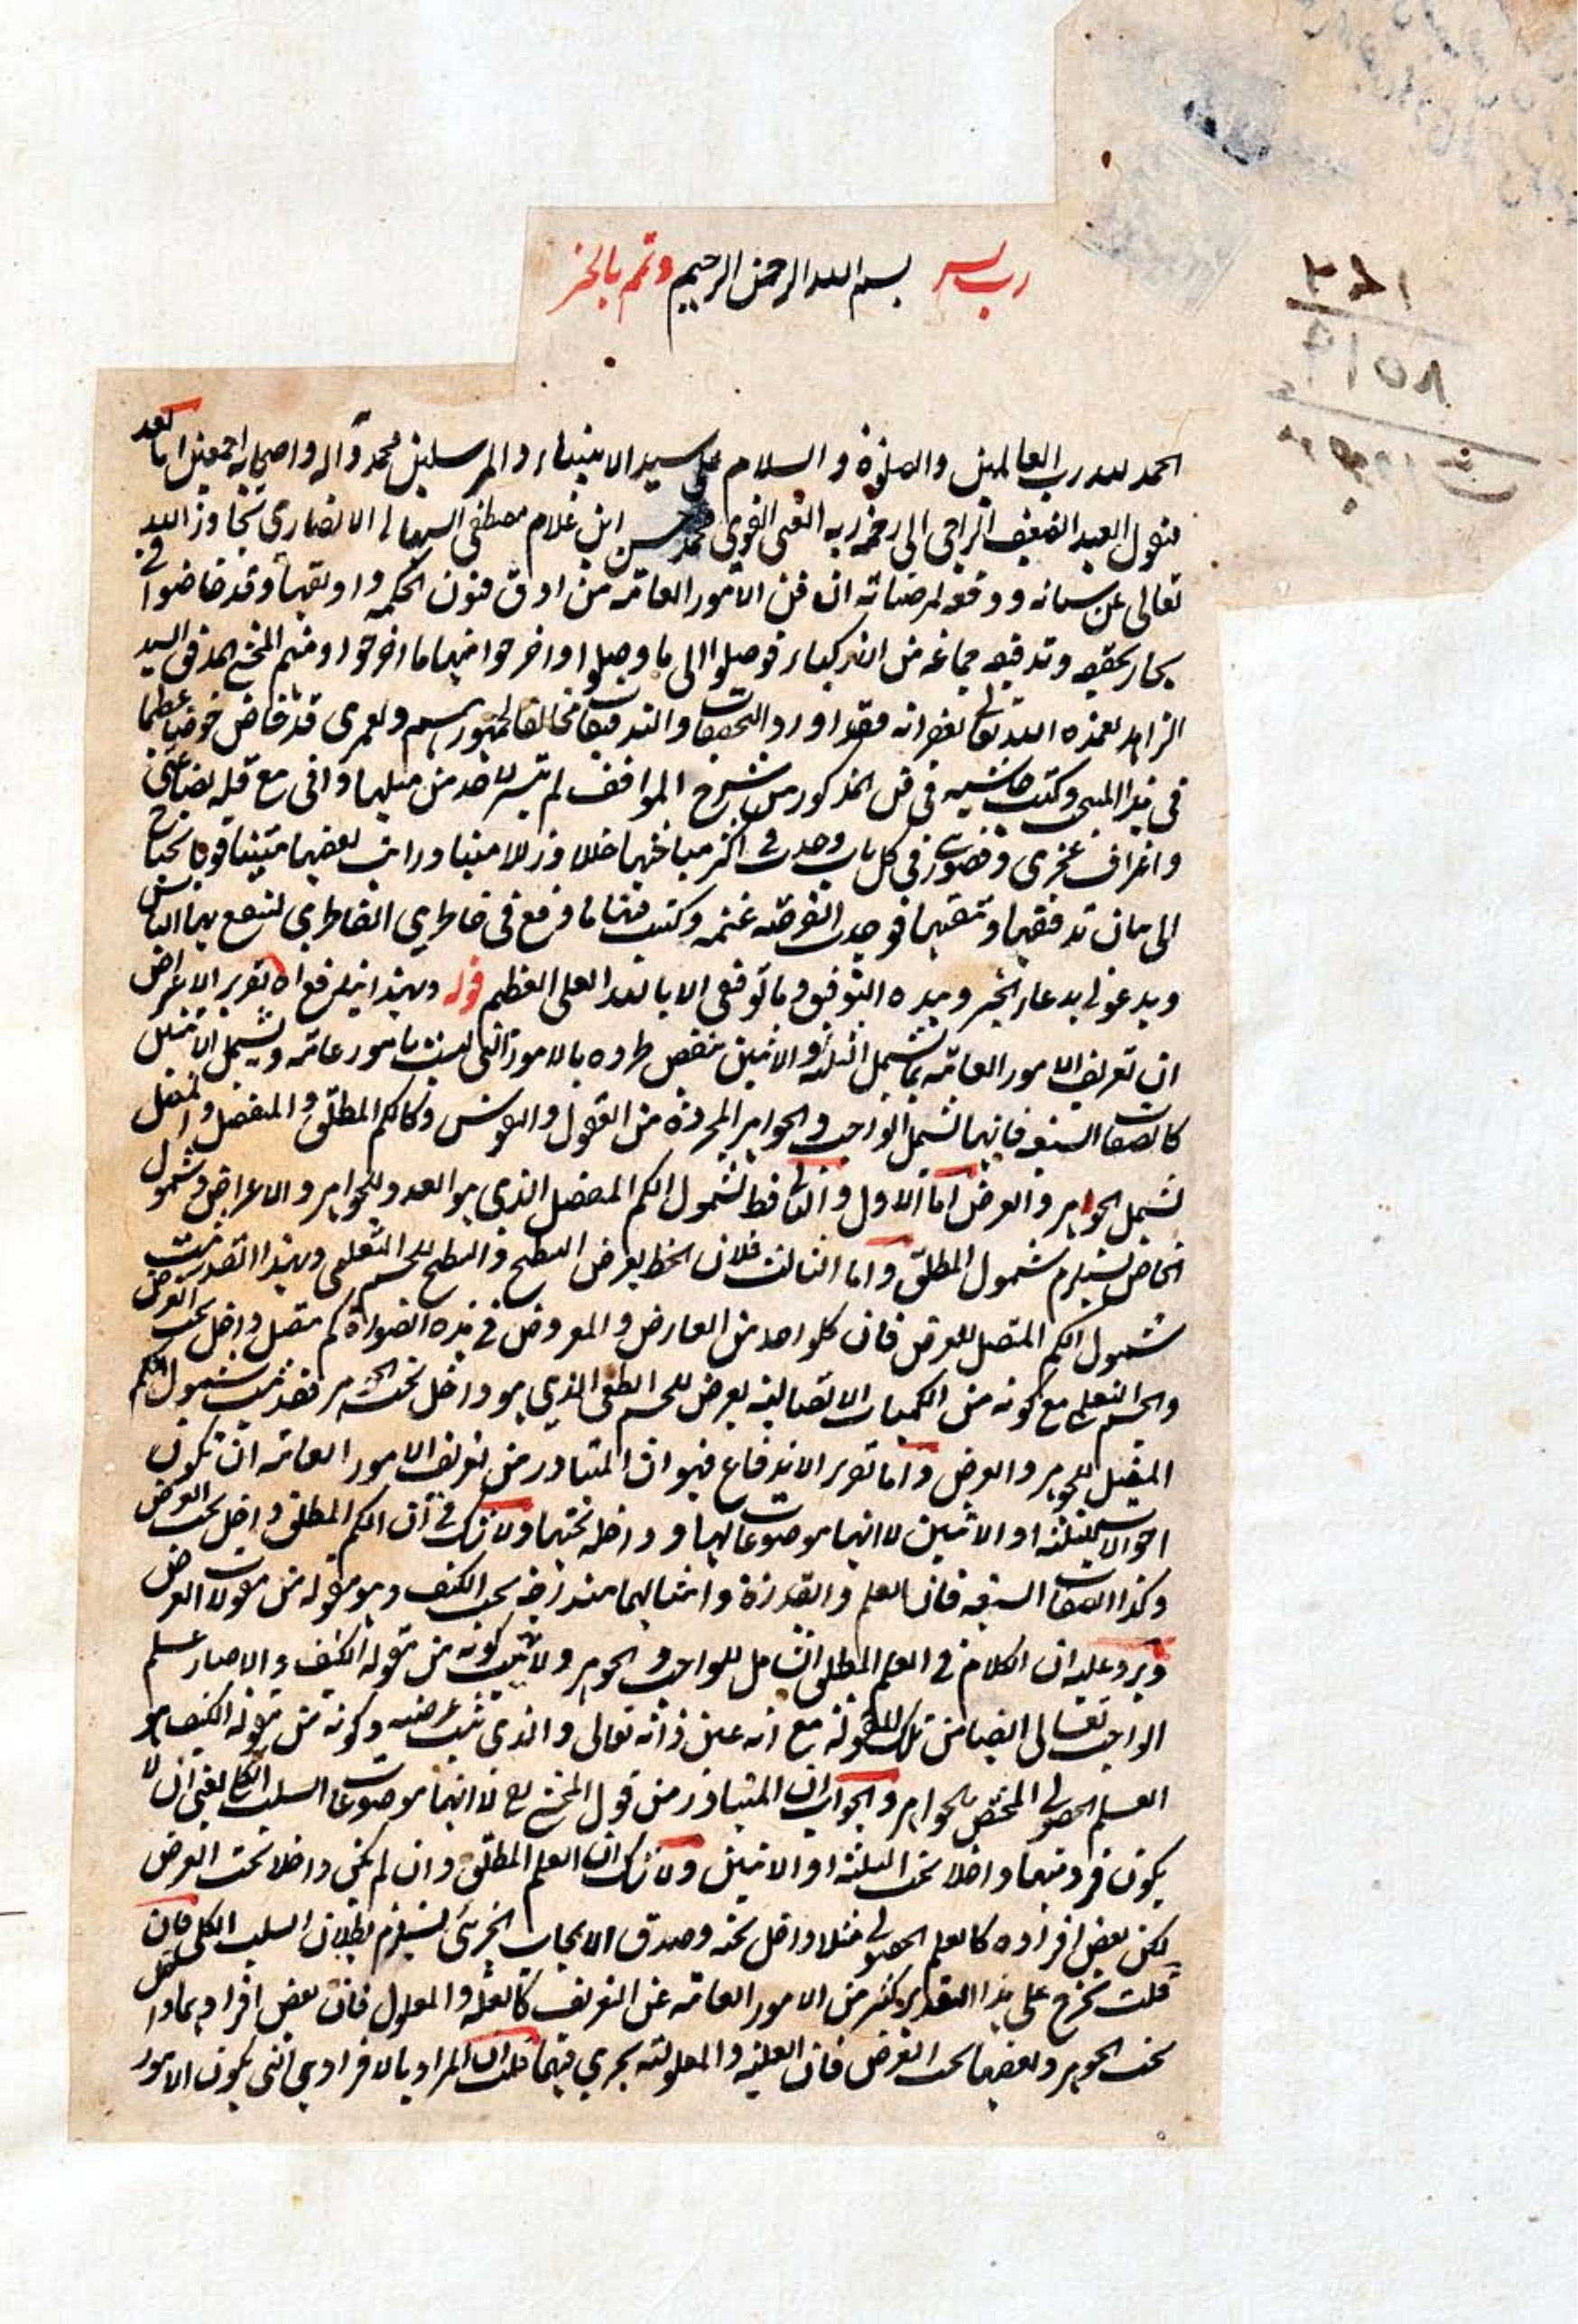 رب يسر بسم الله الرحمن الرحيم وتمم بالخير
الحمد لله رب العالمين والصلوة والسلام على سيد الانبياء والمرسلين محمد وآله واصحابه اجمعين اما بعد
فيقول العبد الضعيف الراجي الى رحمة ربه الغنى القوى محمد حسن ابن غلام مصطفى السهالى الانصاري تجاوز الله
تعالى عن سيئاته ووفقه لمرضاته ان فن الامور العامة من ادق فنون الحكمة واوثقها وقد خاضوا في
بحار تحقيقه وتدقيقه جماعة من الاذكياء فوصلوا الى ما وصلوا واخرجوا منها ما اخرجوا ومنهم المحشى المدقق السيد
الزاهد تغمده الله تعالى بغفرانه فقد اورد التحقيقات والتدقيقات مخالفا لجمهورهم ولعمرى قد خاض خوضا عظيما
في هذا المبحث وكتب حاشيه في فن المذكور من شرح المواقف لم تتيسر لاحد من مثلها وانى مع قلة بضاعتى
واعتراف عجزى وقصورى في كل باب وجدت في اكثر مباحثها خللا وزللا مبينا ورايت بعضها متينا قويا يحتاج
الى بيان تدقيقها وتنقيحها فوجدت الفرصة غنيمة وكتبت فيها ما قرع في خاطري الفاطري لينتفع بها الناس
ويدعو لى بدعاء الخير وبيده التوفيق وما توفيقى الا بالله العلى العظيم قوله وبهذا يندفع اه تقرير الاعتراض
ان تعريف الامور العامة بما يشمل الثلثة او الاثنين منقض طرده بالامور التى ليست بامور عامة ويشمل الاثنين
كالصفات السبع فانها تشمل الواجب والجواهر المجردة من العقول والنفوس وكالكم المطلق والمنفصل والمتصل
يشمل الجوهر والعرض اما الاول والثانى فظ لشمول الكم المنفصل الذي هو العدد للجواهر والاعراض وشمول
الخاص يستلزم شمول المطلق واما الثالث فلان الخط يعرض السطح والسطح للجسم التعليمى وبهذا القدر يثبت
شمول الكم المتصل للعرض فان كلواحد من العارض والمعروض في هذه الصورة كم متصل داخل تحت العرض
والجسم التعليمى مع كونه من الكميات الاتصالية يعرض للجسم الطبعى الذي هو داخل تحت الجوهر فقد ثبت شمول الكم
المتصل للجوهر والعرض واما تقرير الاندفاع فهو ان المتبادر من تعريف الامور العامة ان تكون
احوالا للثلثة او الاثنين لا انها موضوعات لها وداخلة تحتها ولا شك في ان الكم المطلق داخل تحت العرض
وكذا الصفات السبعة فان العلم والقدرة وامثالهما مندرجة تحت الكيف وهو مقولة من مقولات العرض
ويرد عليه ان الكلام في العلم المطلق الشامل للواجب والجوهر ولا يثبت كونه من مقولة الكيف والا صار علم
الواجب تعالى ايضا من تلك المقولة مع انه عين ذاته تعالى والذى ثبت عرضيته وكونه من مقولة الكيف هو
العلم الحصولى المختص بالجواهر والجواب ان المتبادر من قول المحشى رح لا انها موضوعات السلب الكلى يعنى ان لا
يكون فرد منها داخلا تحت الثلثة او الاثنين ولا شك ان العلم المطلق وان لم يكن داخلا تحت العرض
لكن بعض افراده كالعلم الحصولى مثلا داخل تحته وصدق الايجاب الجزئى يستلزم بطلان السلب الكلى فان
قلت تخرج على هذا التقدير كثير من الامور العامة عن التعريف كالعلة والمعلول فان بعض افرادهما داخل
تحت الجوهر وبعضها تحت العرض فان العلية والمعلولية يجرى فيهما قلت ان المراد بالافراد هي التى يكون الامور